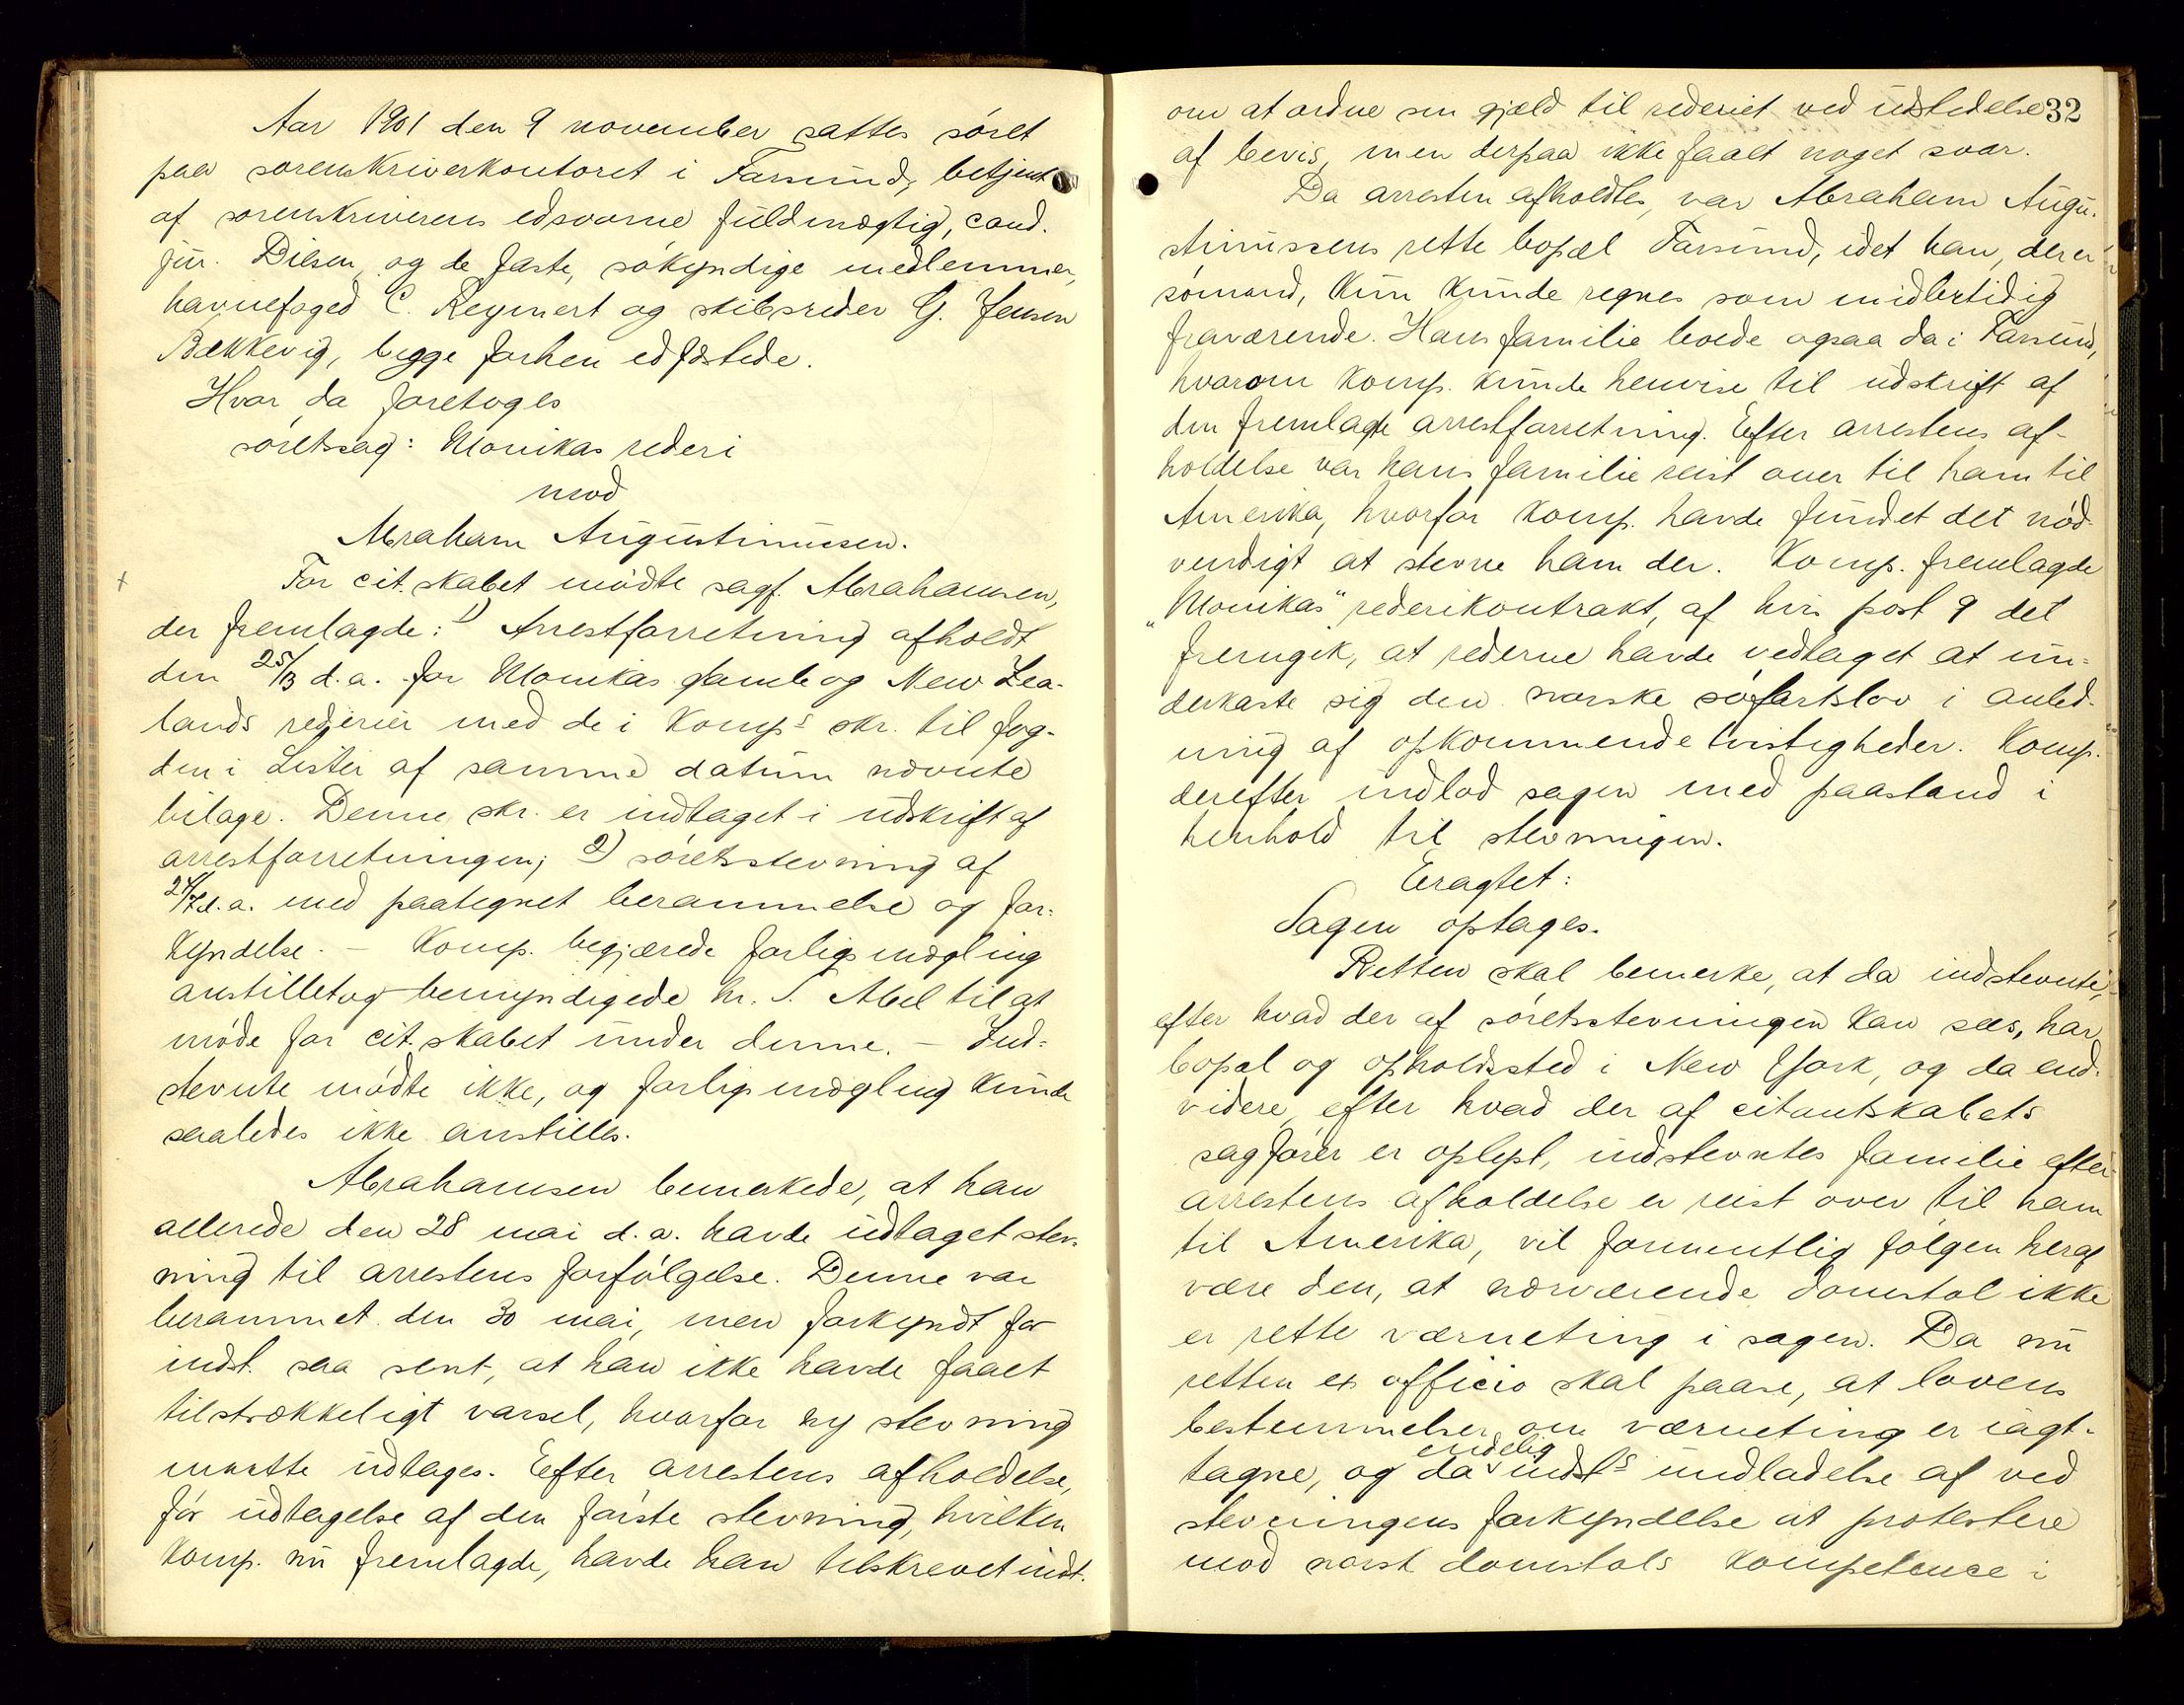 Aar 1901 den 9 november sattes söret
paa sorenskriverkontoret i Farsund, betjent
af sorenskriverens edsvorne fuldmægtig, cand.
jur. Dilsen, og de faste, søkyndige medlemmer,
havnefoged C. Reymert og skibsreder G. Jensen
Bækkevig, begge forhen edfæstede.
Hvor da foretoges
söretssag: Monikas rederi
mod
Abraham Augustinussen.
For cit.skabet mödte sagf. Abrahamsen,
der fremlagde: 1) Arrestforretning afholdt
den 25/3 d.a. for Monikas gamle og New Zea-
lands rederier med de i Komps skr. til fog-
den i Lister af samme datum nævnte
bilage. Denne skr. er indtaget i udskrift af
arrestforretningen; 2) söretsstevning af
24/7 d.a. med paategnet berammelse og for-
kyndelse. – Komp. begjærede forligsmægling
anstillet og bemyndigede hr. S. Abel til at
möde for cit.skabet under denne. – Ind-
stevnte mödte ikke, og forligsmægling kunde
saaledes ikke anstilles.
Abrahamsen bemerkede, at han
allerede den 28 mai d.a. havde udtaget stev-
ning til arrestens forfölgelse. Denne var
berammet den 30 mai, men forkyndt for
indst. saa sent, at han ikke havde faaet
tilstrækkeligt varsel, hvorfor ny stevning
maatte udtages. Efter arrestens afholdelse,
för udtagelse af den förste stevning, hvilken
Komp. nu fremlagde, havde han tilskrevet indst.
32
om at ordne sin gjæld til rederiet ved udstedelse
af bevis, men derpaa ikke faaet noget svar.
Da arresten afholdtes, var Abraham Augu-
stinussens rette bopæl Farsund, idet han, der er
sömand, kun kunde regnes som midlertidig
fraværende. Hans familie boede ogsaa da i Farsund,
hvorom Komp. kunde henvise til udskrift af
den fremlagte arrestforretning. Efter arrestens af-
holdelse var hans familie reist over til ham til
Amerika, hvorfor Komp. havde fundet det nöd-
vendigt at stevne ham der. Komp. fremlagde
"Monikas" rederikontrakt, af hvis post 9 det
fremgik, at rederne havde vedtaget at un-
derkaste sig den norske söfartslov i anled-
ning af opkommende tvistigheder. Komp.
derefter indlod sagen med paastand i
henhold til stevningen.
Eragtet:
Sagen optages.
Retten skal bemerke, at da indstevnte,
efter hvad der af söretsstevningen kan sees, har
bopæl og opholdssted i New York, og da end-
videre, efter hvad der af citantskabets
sagförer er oplyst, indstevntes familie efter
arrestens afholdelse er reist over til ham
til Amerika, vil formentlig fölgen heraf
være den, at nærværende domstol ikke
er rette værneting i sagen. Da nu
retten ex officio skal paase, at lovens
bestemmelser om værneting er iagt-
tagne, og da endelig indsts undladelse af ved
stevningens forkyndelse at protestere
mod norsk domstols kompetence i